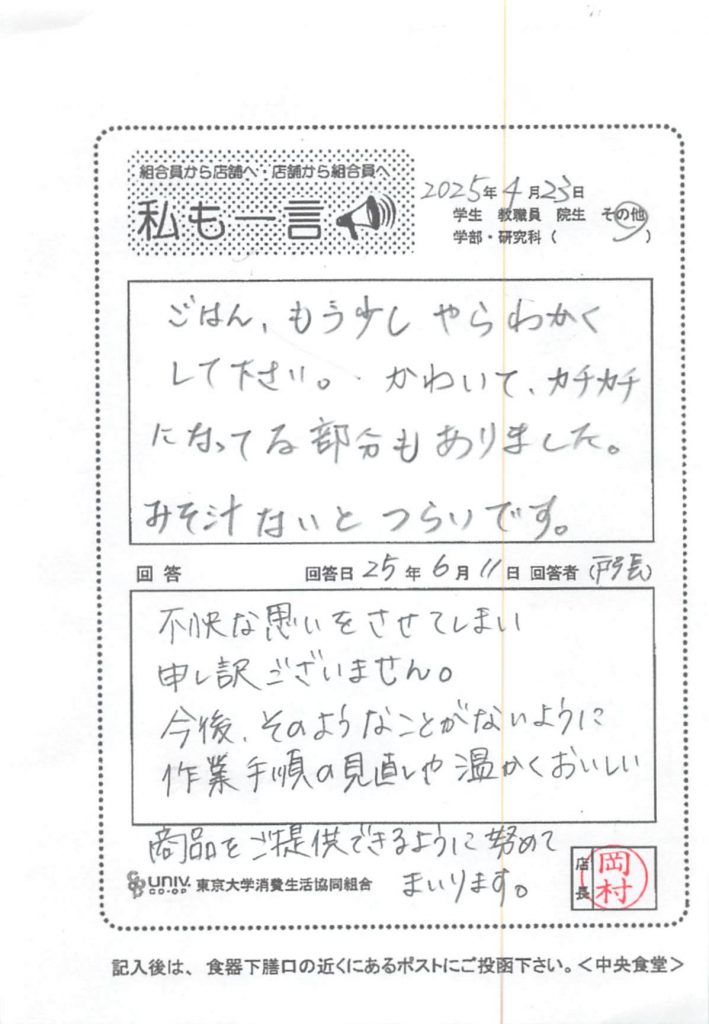 組合員から店舗へ・店舗から組合員へ
私も一言
2025年4月23日
学生 教職員 院生 その他
学部・研究科( )
ごはん、もう少しやらわかく
して下さい。かわいて、カチカチ
になってる部分もありました。
みそ汁ないとつらいです。
回答 回答日25年6月11日 回答者(店長)
不快な思いをさせてしまい
申し訳ございません。
今後、そのようなことがないように
作業手順の見直しや温かくおいしい
商品をご提供できるように努めて
まいります。
UNIV. CO-OP 東京大学消費生活協同組合
店長 岡村
記入後は、食器下膳口の近くにあるポストにご投函下さい。<中央食堂>